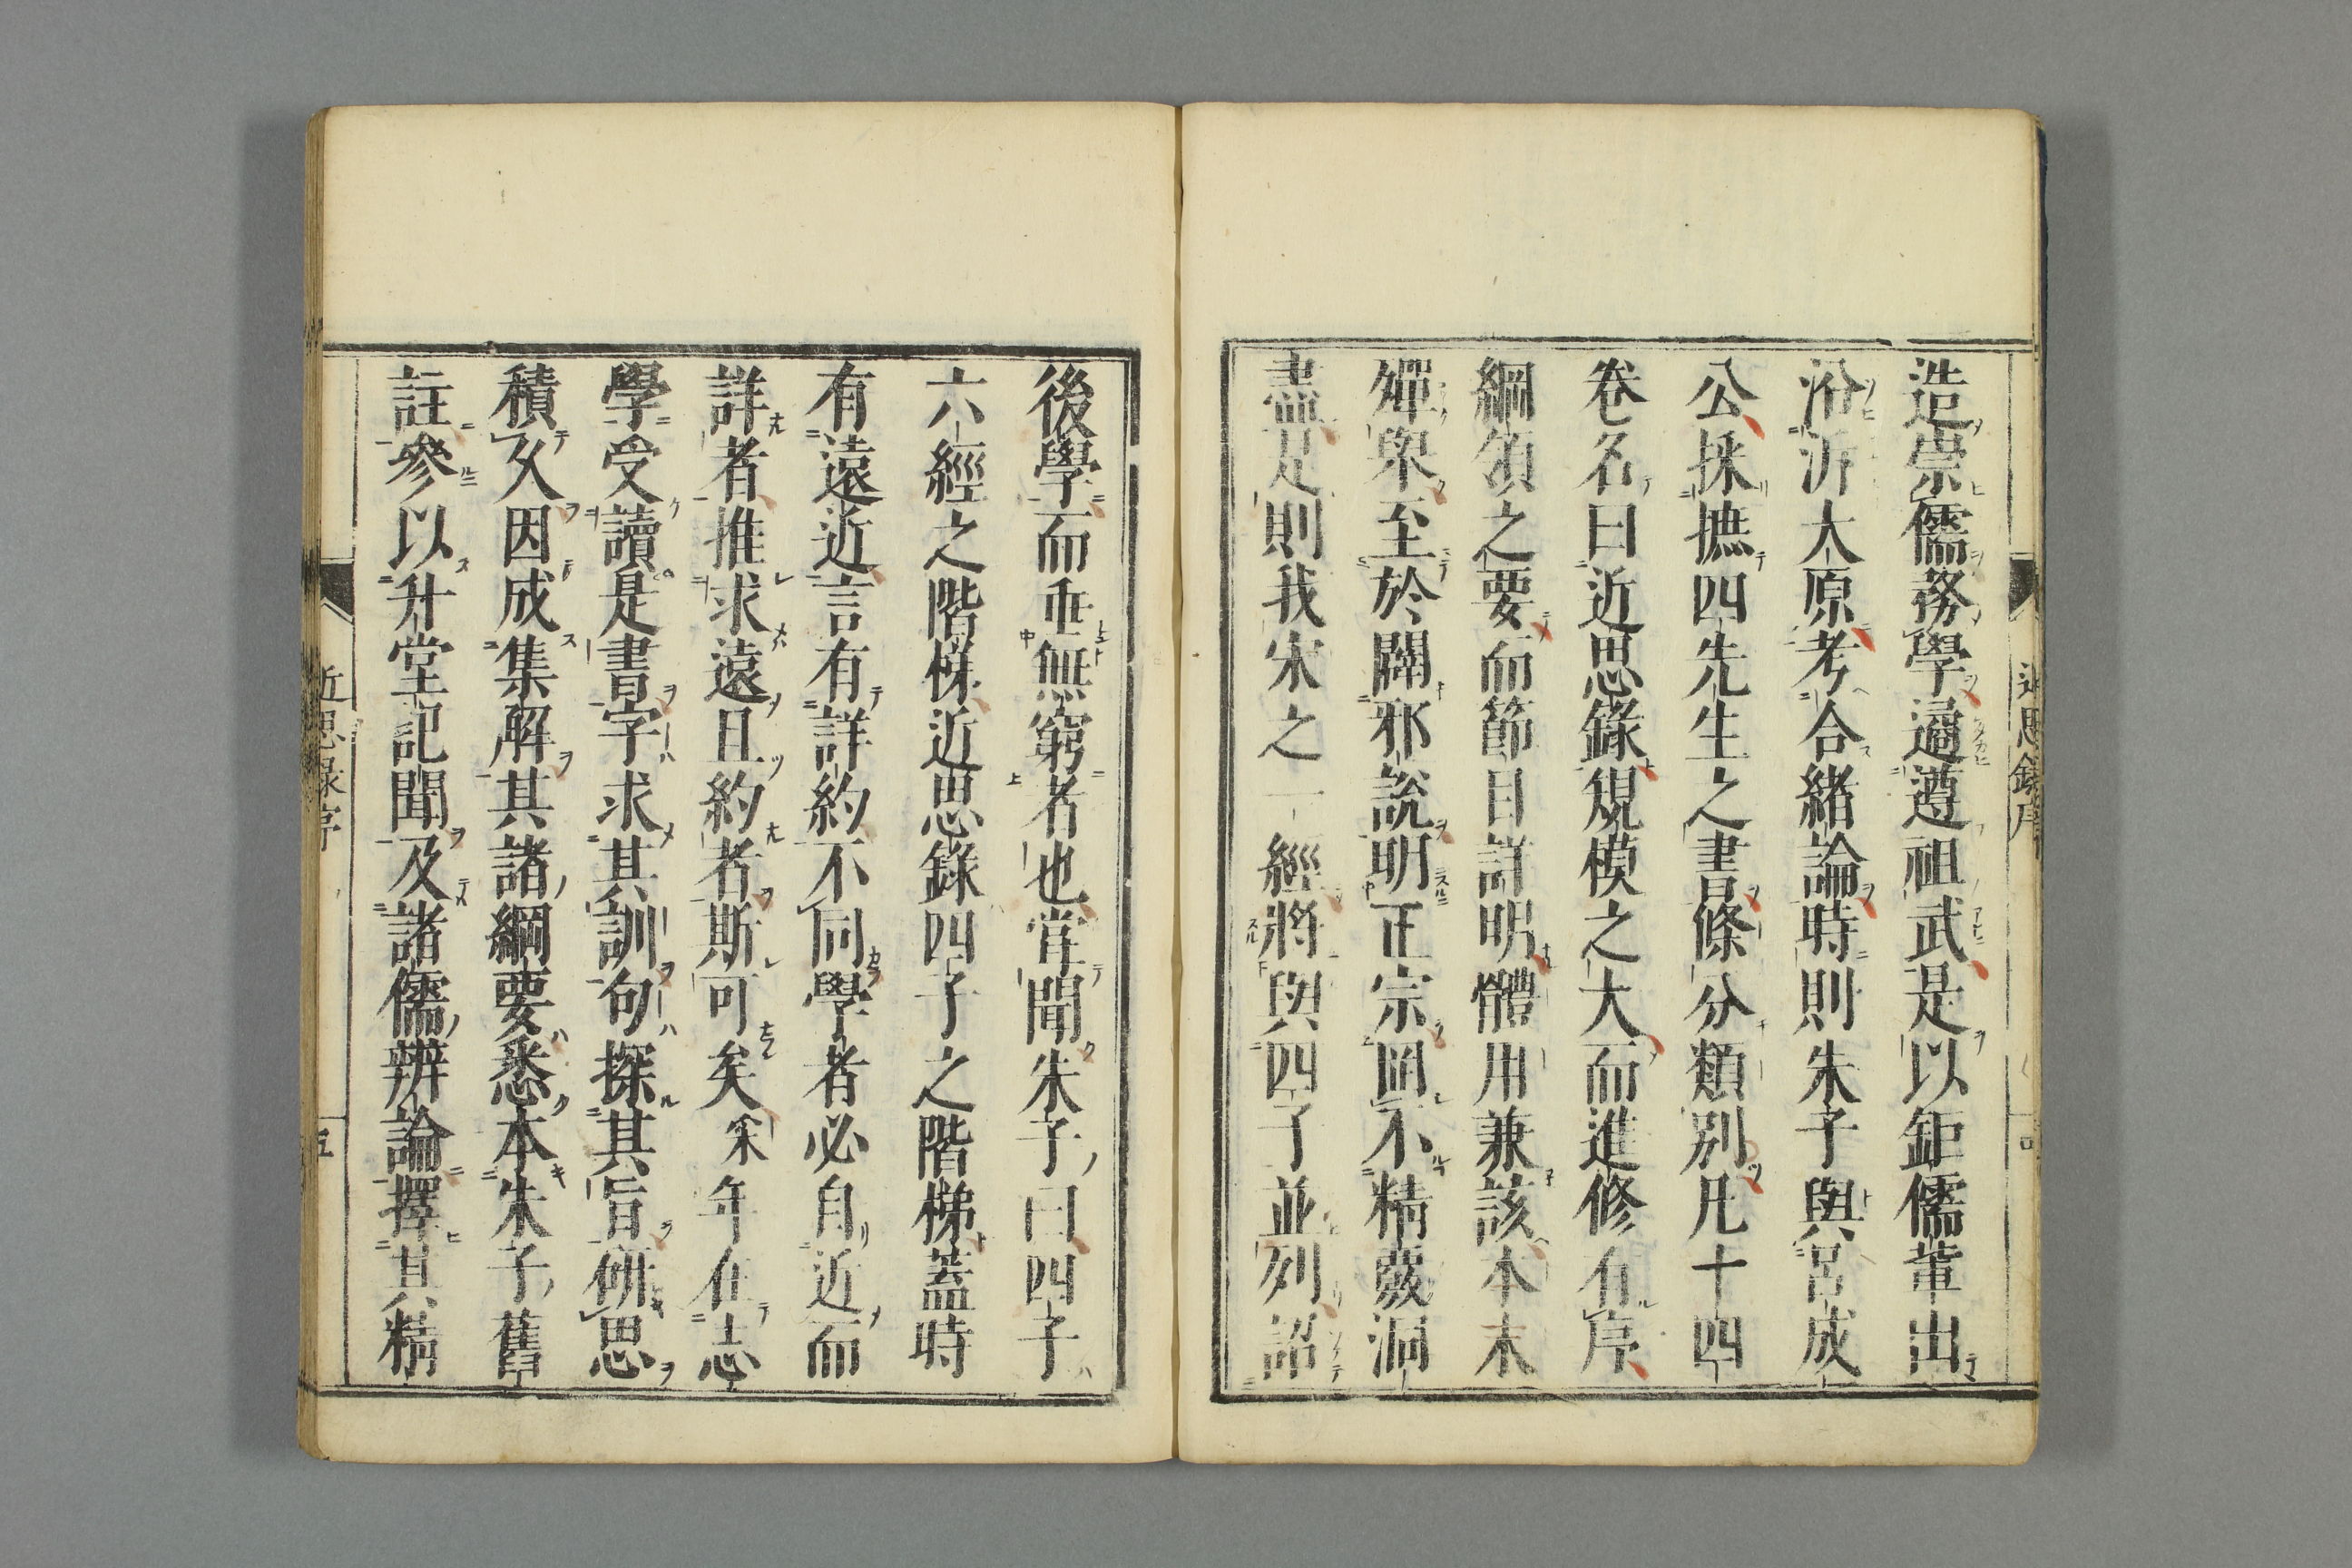 造崇儒務學遹遵祖武是以鉅儒輩出
沿泝大原考合緒論時則朱子與呂成
公採摭四先生之書條分類別凡十四
卷名曰近思錄規模之大而進修有序
綱領之要而節目詳明體用兼該本末
殫舉至於闢邪說明正宗罔不精覈洞
盡是則我宋之一經將與四子並列詔
後學而垂無窮者也嘗聞朱子曰四子
六經之階梯近思錄四子之階梯蓋時
有遠近言有詳約不同學者必自近而
詳者推求遠且約者斯可矣采年在志
學受讀是書字求其訓句探其旨研思
積久因成集解其諸綱要悉本朱子舊
註參以升堂記聞及諸儒辨論擇其精
近思錄序
五